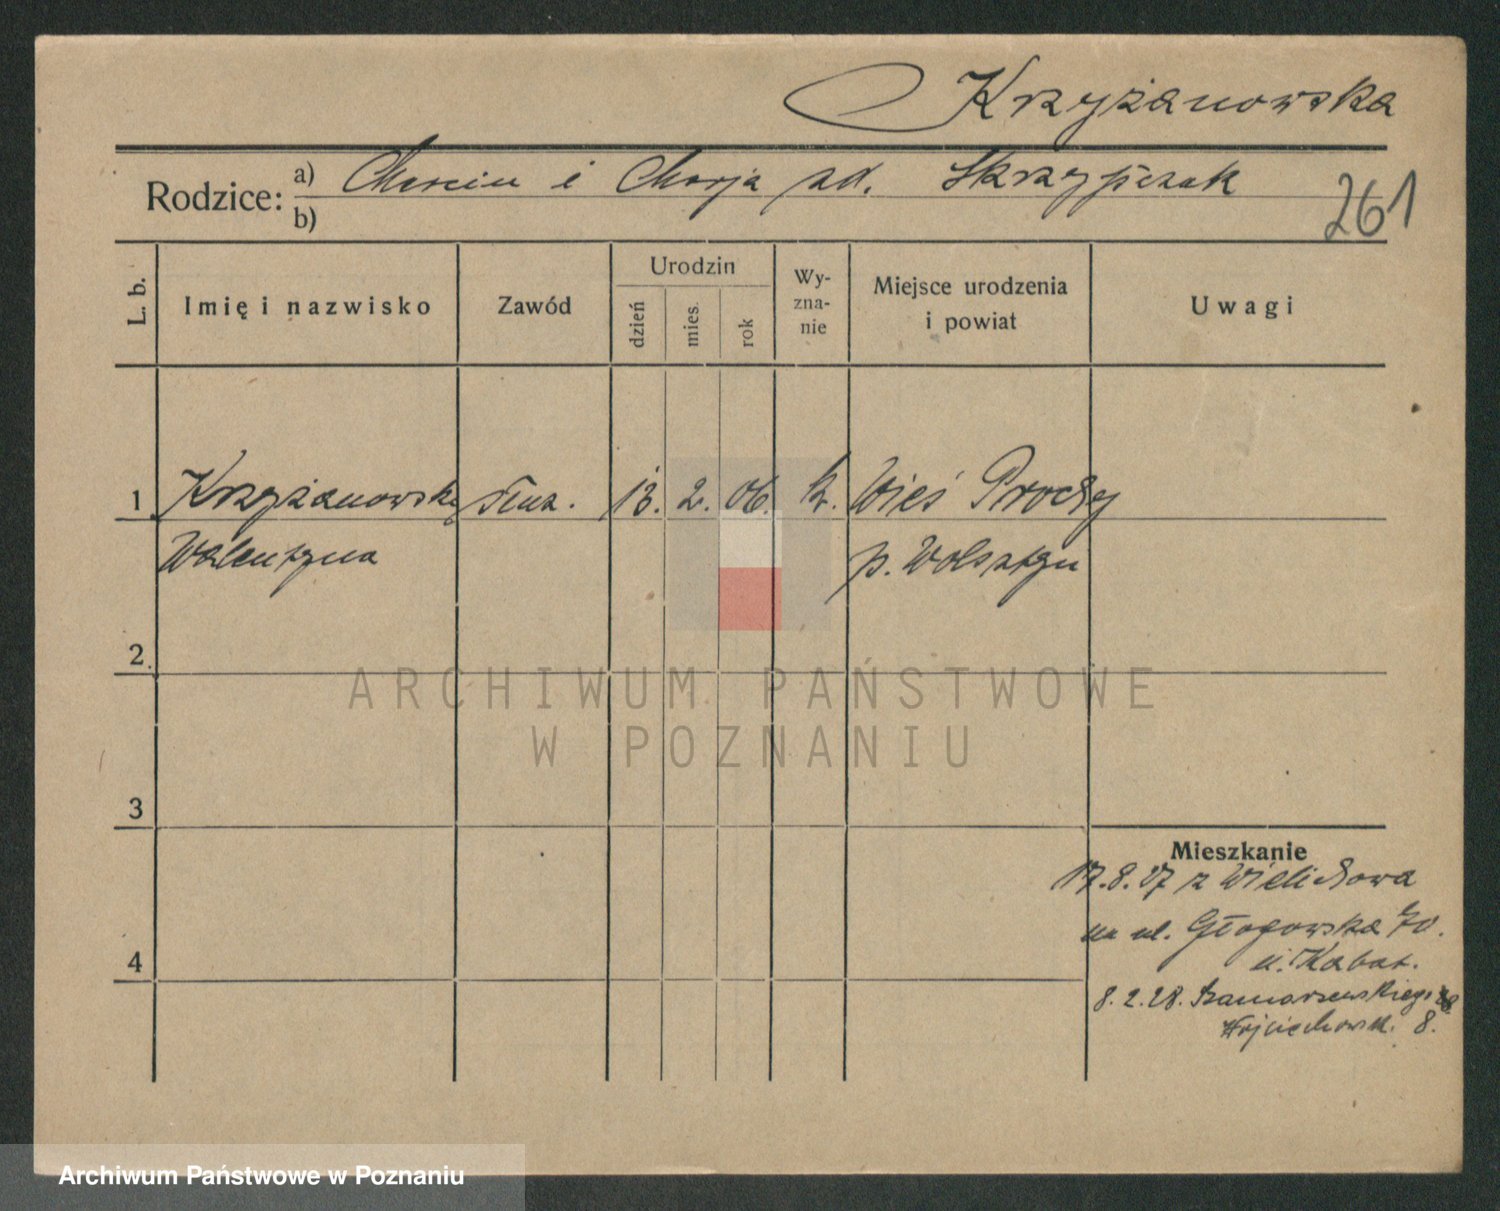 Krzyżanowska
Rodzice: a) Marcin i Marja zd. Skrzypczak
b)
261
L. b. Imię i nazwisko Zawód Urodzin dzień mies. rok Wyznanie Miejsce urodzenia i powiat Uwagi
1 Krzyżanowska służ. 13. 2. 06. k. Wieś Prochy
Walentyna p. Wolsztyn
2.
3
4
Mieszkanie
17.8.27 z Wielichowa
na ul. Głogowska 70.
u. Kabat.
8.2.28. Szamarzewskiego
Wojciechowsk. 8.
ARCHIWUM PAŃSTWOWE
W POZNANIU
Archiwum Państwowe w Poznaniu